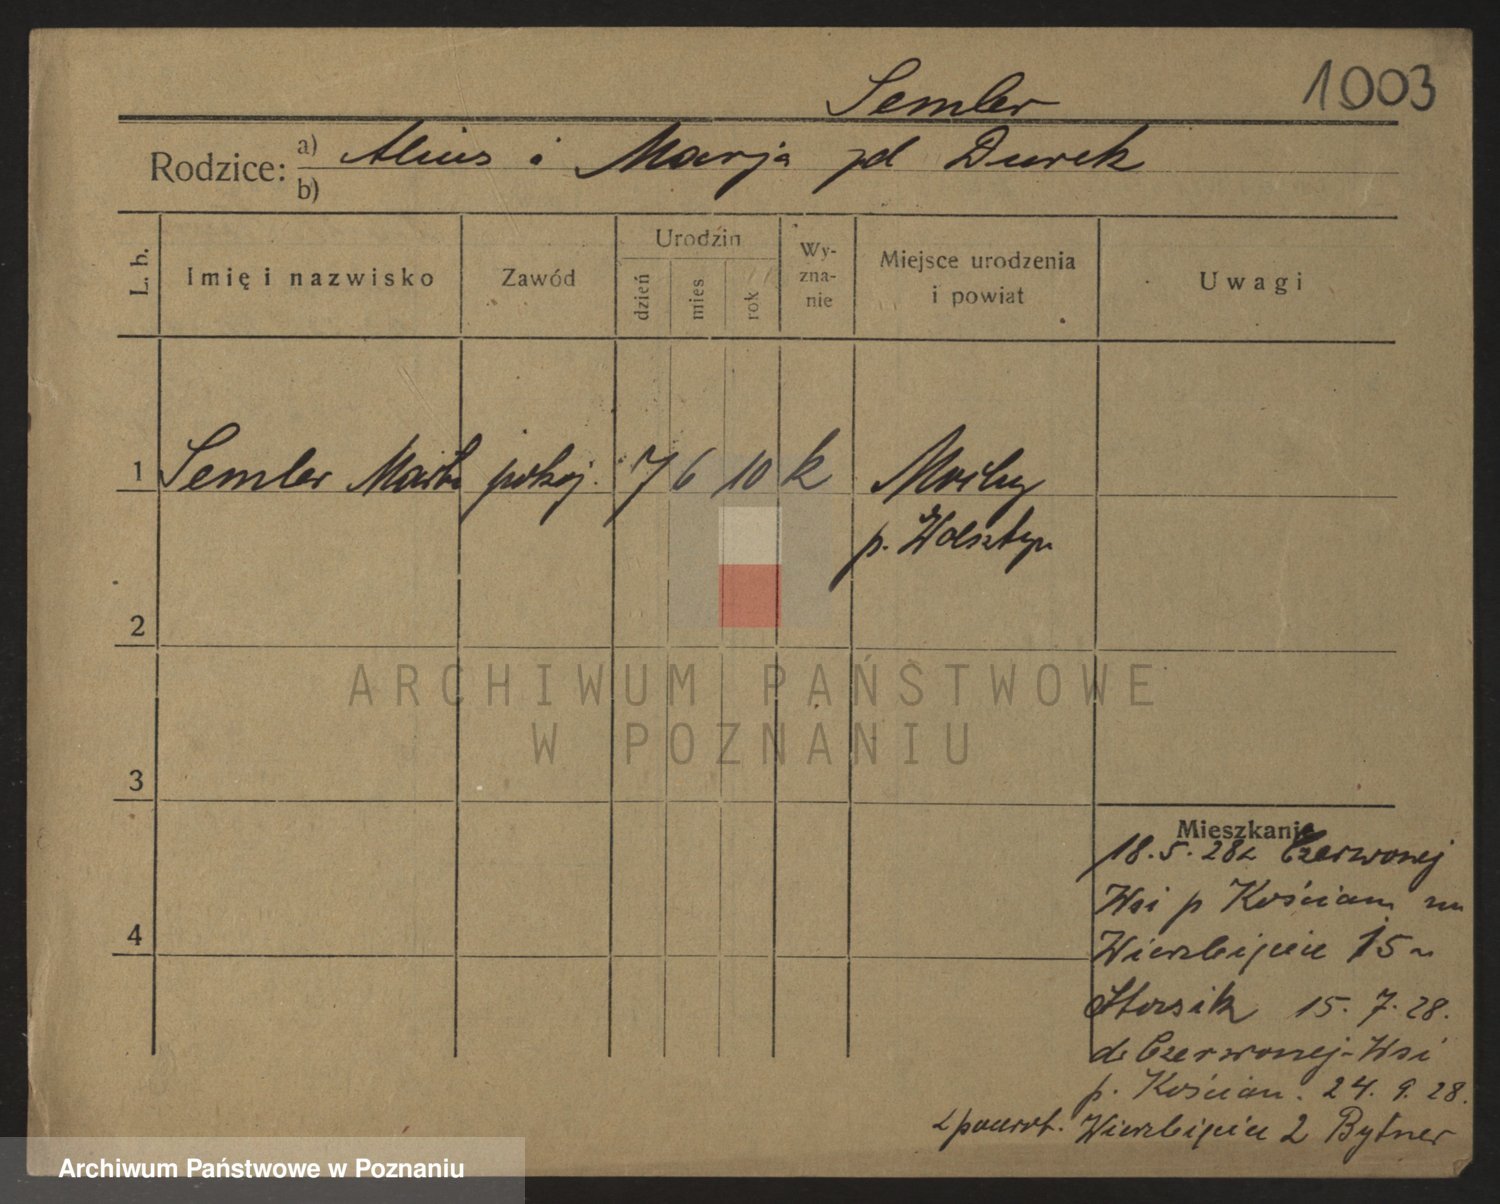 Semler
1003
Rodzice: a) Alius i Marja zd Durek
b)
L. b.
Imię i nazwisko
Zawód
Urodzin
dzień
mies
rok
Wy-
zna-
nie
Miejsce urodzenia
i powiat
Uwagi
1 Semler Marta pokoj. 7 6 10 k
p. Wolsztyn
2
3
4
Mieszkanie
18.5.28 z Czerwonej
Wsi p Kościan
Wierzbięcic 15
15. 7. 28.
do Czerwonej-Wsi
p. Kościan. 24. 9. 28.
z powrot. Wierzbięcic 2 Bytner
ARCHIWUM PAŃSTWOWE
W POZNANIU
Archiwum Państwowe w Poznaniu